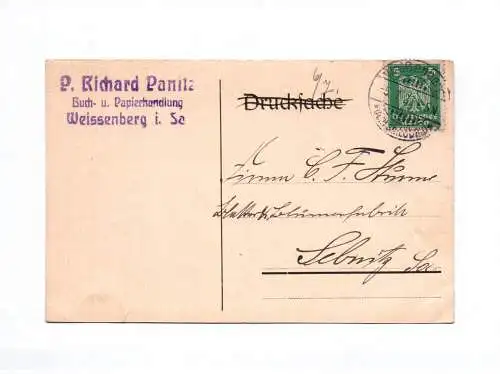 P. Richard Panitz
Buch- u. Papierhandlung
Weissenberg i. Sa
6/7.
Drucksache
Firma C. F. Sturm
Blatter u. Blumenfabrik
Sebnitz Sa.